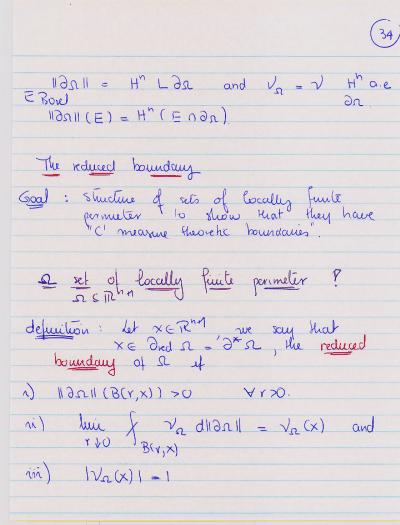 34
||∂Ω|| = Hⁿ L ∂Ω and ν_Ω = ν Hⁿ a.e
E Borel ∂Ω.
||∂Ω||(E) = Hⁿ(E ∩ ∂Ω)
The reduced boundary
Goal : structure of sets of locally finite
perimeter to show that they have
"C¹ measure theoretic boundaries".
Ω set of locally finite perimeter ?
Ω ⊆ ℝⁿ⁺¹
definition : Let x ∈ ℝⁿ⁺¹ we say that
x ∈ ∂red Ω = ∂* Ω, the reduced
boundary of Ω if
i) ||∂Ω||(B(r,x)) > 0 ∀ r > 0.
ii) lim r↓0 ⨍ B(r,x) ν_Ω d||∂Ω|| = ν_Ω(x) and
iii) |ν_Ω(x)| = 1